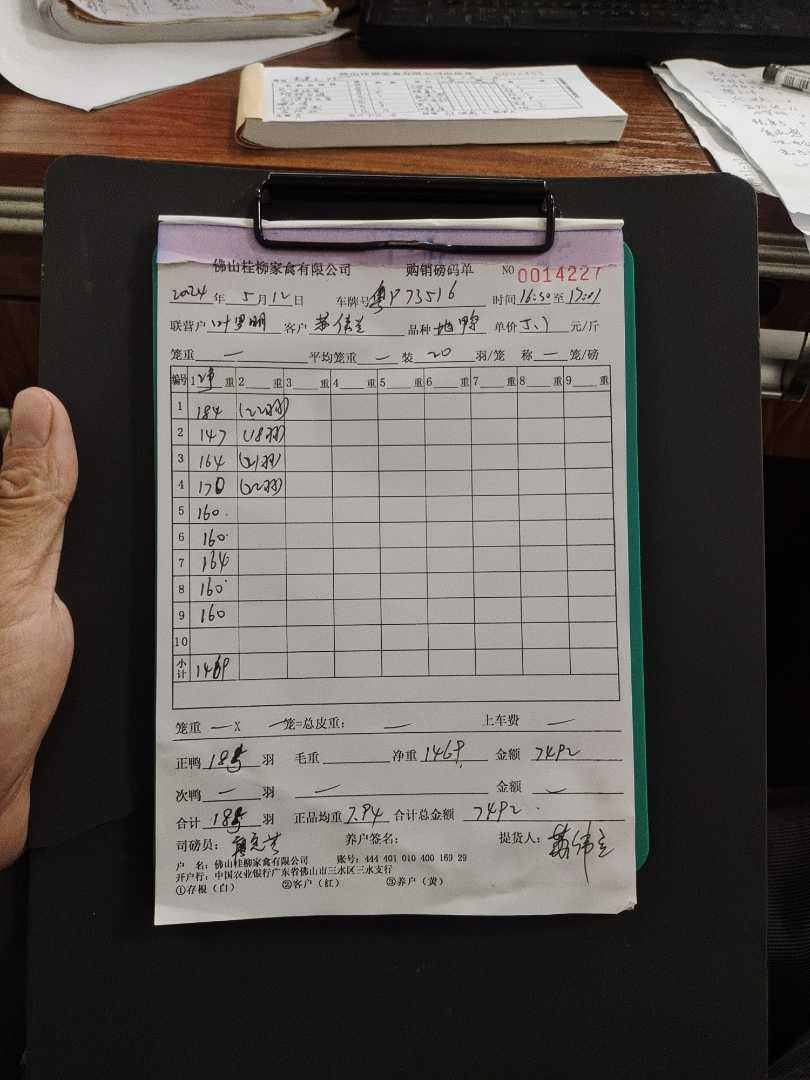 佛山桂柳家禽有限公司 购销磅码单 NO 0014227
2024 年 5 月 12 日 车牌号 粤P73516 时间 16:30 至 17:01
联营户 叶罗明 客户 苏伟兰 品种 单价 5.1 元/斤
笼重 — 平均笼重 — 装 20 羽/笼 称 — 笼/磅
编号 1 净 重 2 重 3 重 4 重 5 重 6 重 7 重 8 重 9 重
1 184 (22羽)
2 147 (18羽)
3 164 (21羽)
4 170 (22羽)
5 160
6 160
7 164
8 160
9 160
10
小计 1469
笼重 — X — 笼=总皮重: — 上车费 —
正鸭 185 羽 毛重 净重 1469 金额 7492
次鸭 — 羽 — 金额 —
合计 185 羽 正品均重 7.94 合计总金额 7492
司磅员: 养户签名: 提货人:
户 名: 佛山桂柳家禽有限公司 账号: 444 401 010 400 169 29
开户行: 中国农业银行广东省佛山市三水区三水支行
①存根(白) ②客户(红) ③养户(黄)